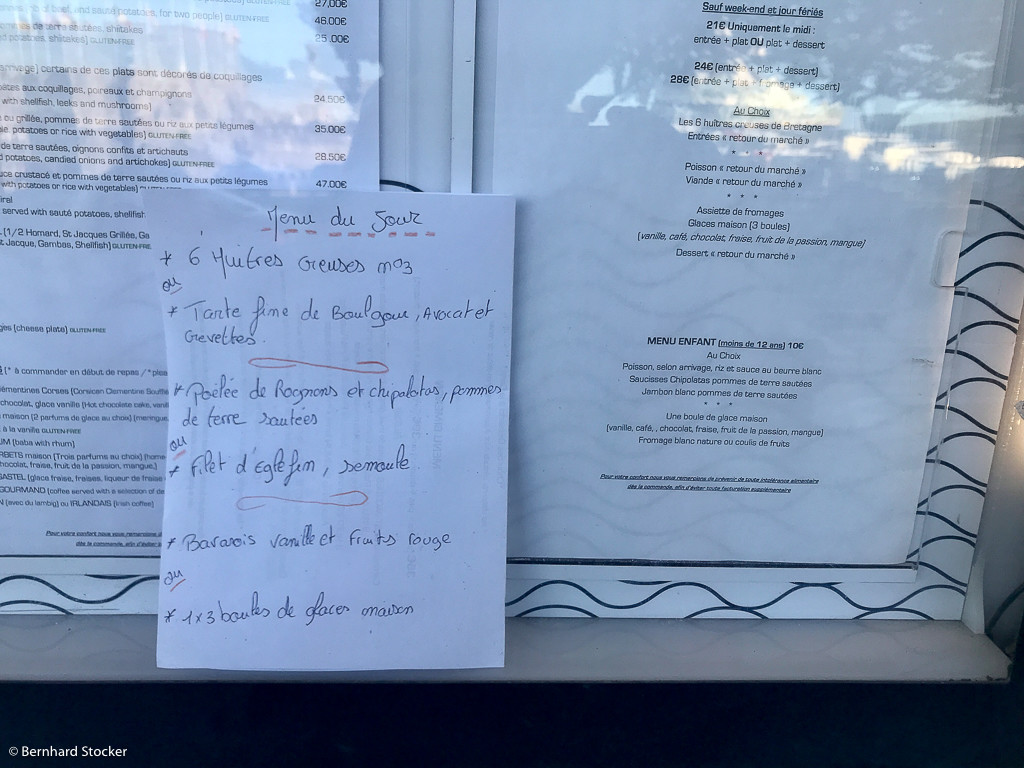 27.00€
and sauté potatoes, for two people) GLUTEN-FREE
46.00€
de terre sautées, shiitakes
potatoes, shiitakes) GLUTEN-FREE 25.00€
certains de ces plats sont décorés de coquillages
aux coquillages, poireaux et champignons
with shellfish, leeks and mushrooms) 24.50€
ou grillée, pommes de terre sautées ou riz aux petits légumes
potatoes or rice with vegetables) GLUTEN-FREE 35.00€
de terre sautées, oignons confits et artichauts
potatoes, candied onions and artichokes) GLUTEN-FREE 28.50€
crustacé et pommes de terre sautées ou riz aux petits légumes
with potatoes or rice with vegetables) 47.00€
served with sauté potatoes, shellfish
(1/2 Homard, St Jacques Grillée, Ga
Jacque, Gambas, Shellfish) GLUTEN-FREE
(cheese plate) GLUTEN-FREE
(* à commander en début de repas / *plea
Corses (Corsican Clementine Souffle
chocolat, glace vanille (Hot chocolate cake, vanil
maison (2 parfums de glace au choix) (meringue,
à la vanille GLUTEN-FREE
(baba with rhum)
maison (Trois parfums au choix) (home
chocolat, fraise, fruit de la passion, mangue,)
(glace fraise, fraises, liqueur de fraise
GOURMAND (coffee served with a selection of de
(avec du lambig) ou IRLANDAIS (Irish coffee)
Pour votre confort nous vous remercions de
dès la commande, afin d'éviter
Menu du Jour
* 6 Huitres Creuses n°3
ou
* Tarte fine de Boulgour, Avocat et
Crevettes.
* Poêlée de Rognons et chipolatas, pommes
de terre sautées
ou
* Filet d'Eglefin, semoule
* Bavarois vanille et Fruits rouge
ou
* 1x3 boules de glaces maison
Sauf week-end et jour fériés
21€ Uniquement le midi :
entrée + plat OU plat + dessert
24€ (entrée + plat + dessert)
28€ (entrée + plat + fromage + dessert)
Au Choix
Les 6 huîtres creuses de Bretagne
Entrées « retour du marché »
* * *
Poisson « retour du marché »
Viande « retour du marché »
* * *
Assiette de fromages
Glaces maison (3 boules)
(vanille, café, chocolat, fraise, fruit de la passion, mangue)
Dessert « retour du marché »
MENU ENFANT (moins de 12 ans) 10€
Au Choix
Poisson, selon arrivage, riz et sauce au beurre blanc
Saucisses Chipolatas pommes de terre sautées
Jambon blanc pommes de terre sautées
* * *
Une boule de glace maison
(vanille, café, , chocolat, fraise, fruit de la passion, mangue)
Fromage blanc nature ou coulis de fruits
Pour votre confort nous vous remercions de prévenir de toute intolérance alimentaire
dès la commande, afin d'éviter toute facturation supplémentaire
© Bernhard Stocker